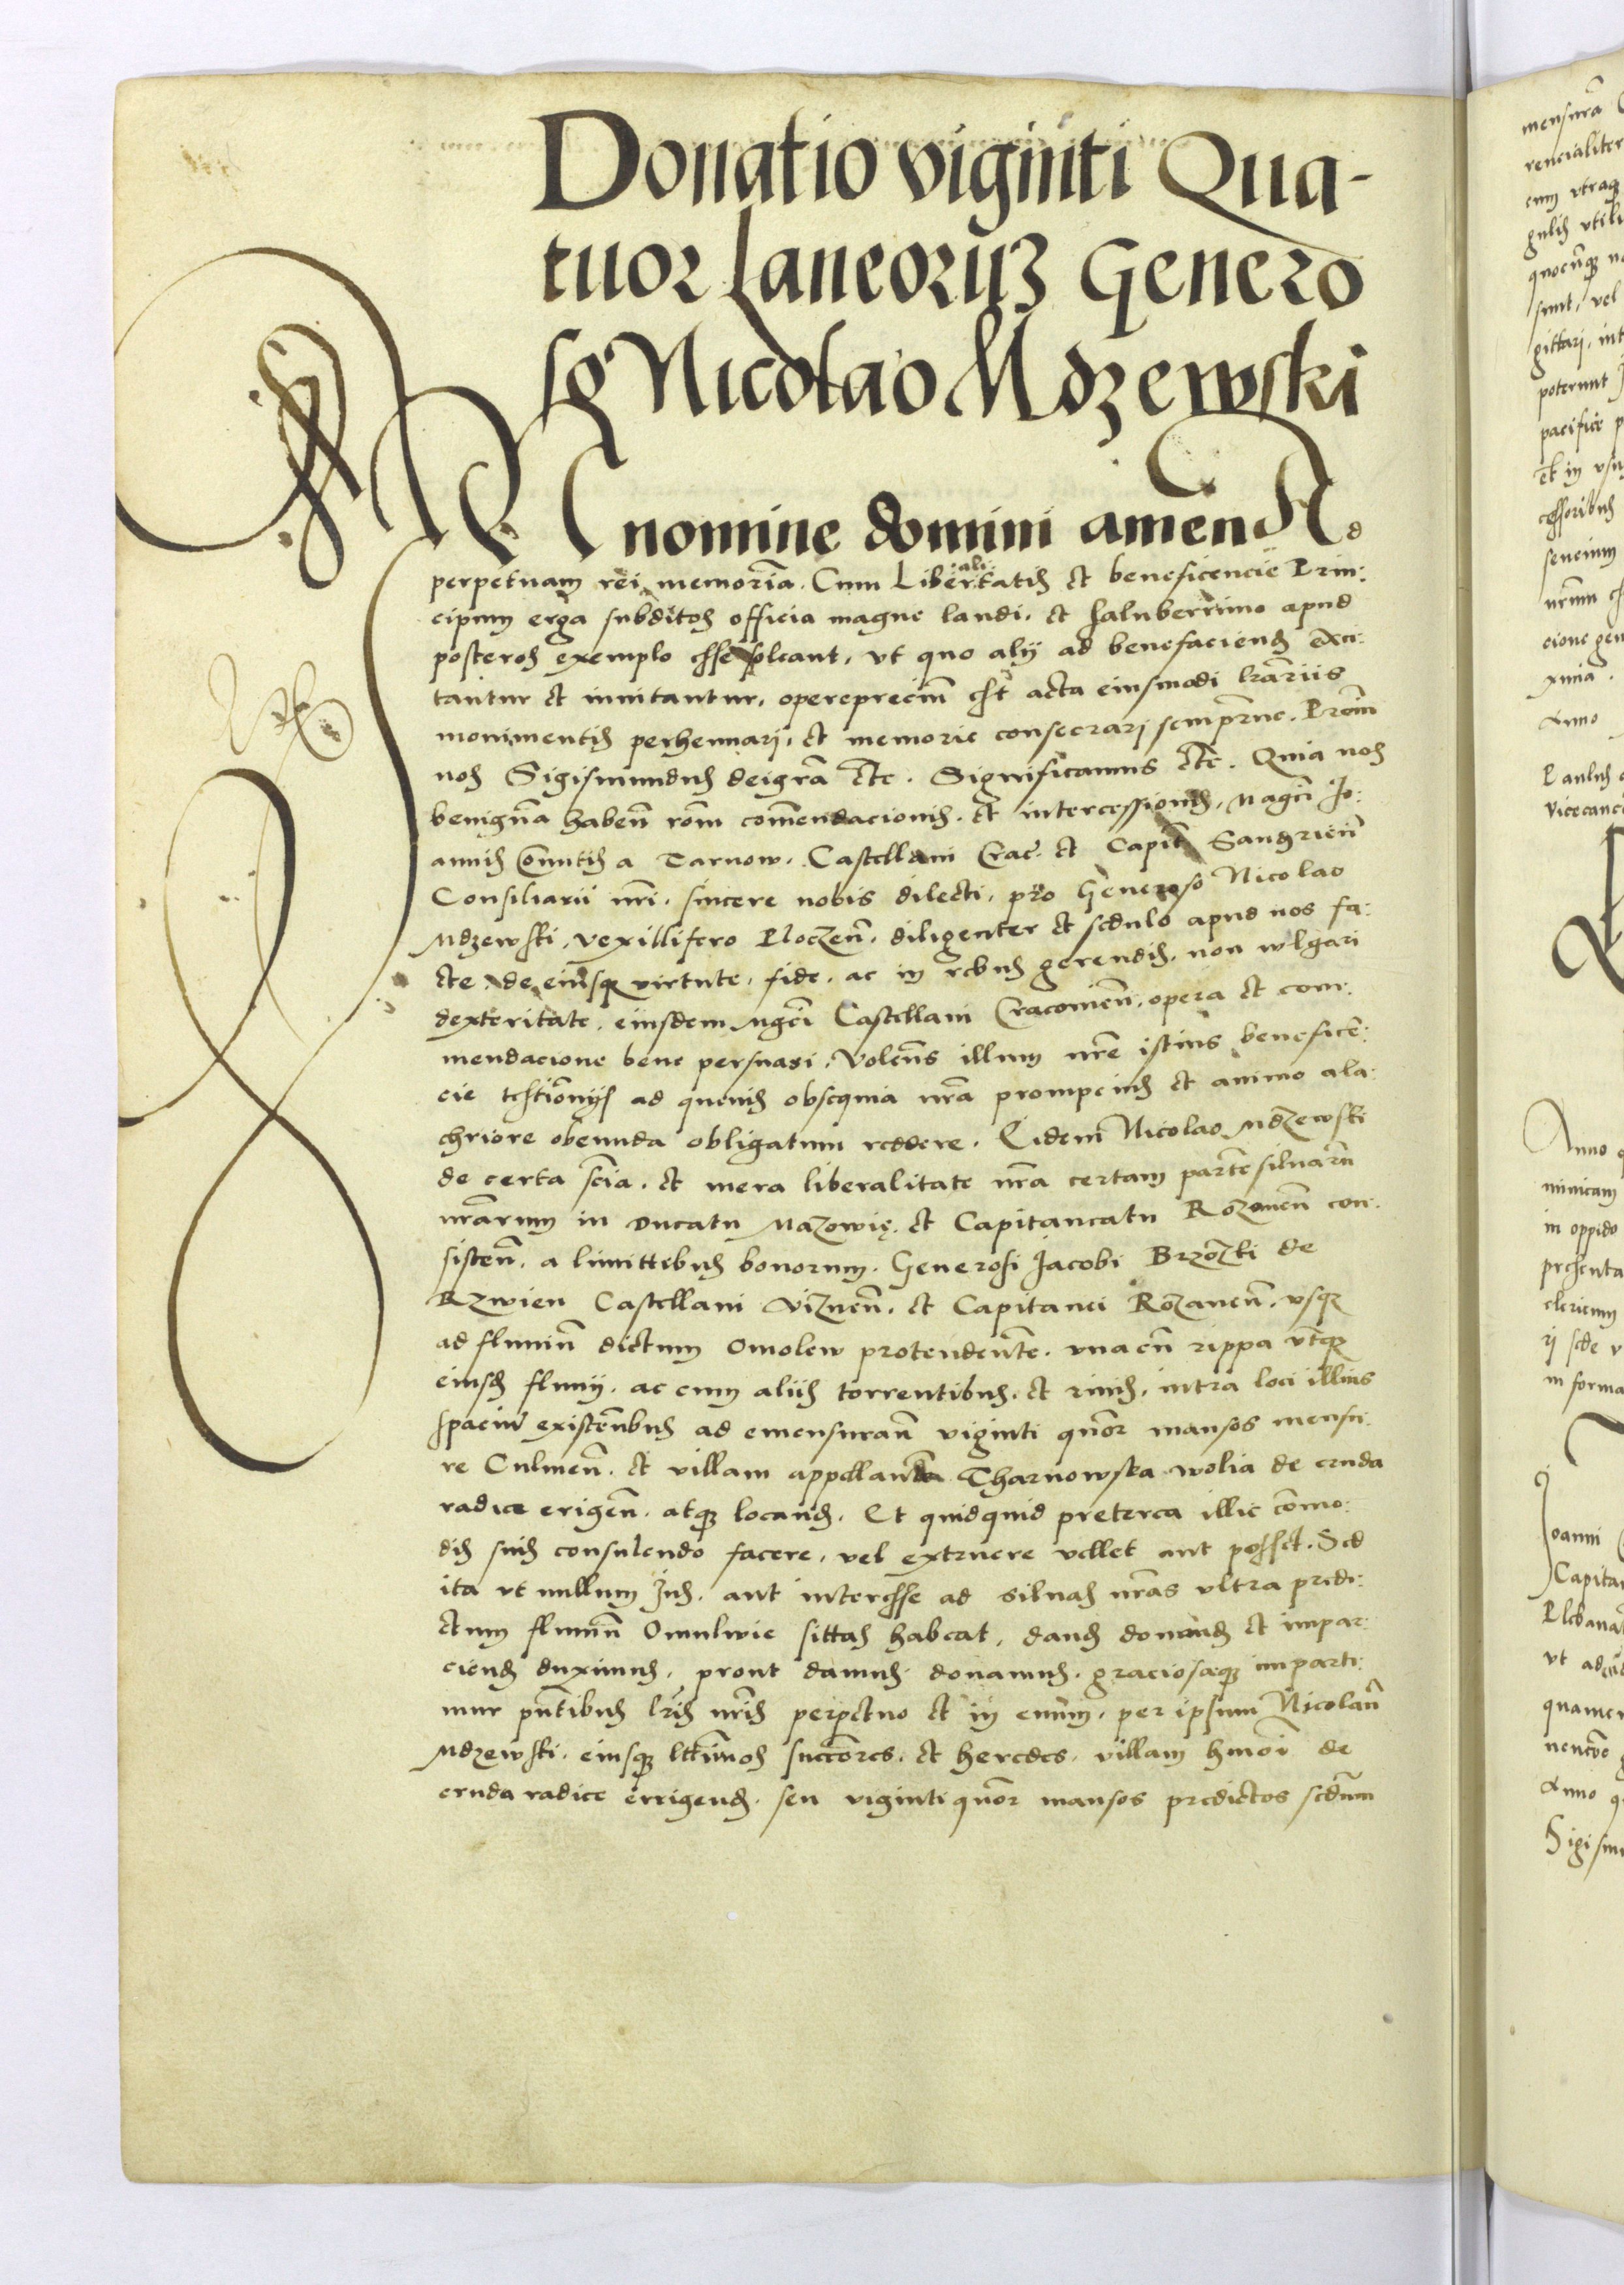 Donatio viginti Qua-
tuor Laneorum Genero
so Nicolao Mdzewski
IN nomine domini amen Ad
perpetuam rei memoriam. Cum Libertatis ali et beneficencie Prin:
cipum erga subditos officia magne laudi, et saluberrimo apud
posteros exemplo esse soleant, vt quo alij ad benefaciend exci:
tantur et inuitantur, opereprecium est acta eiusmodi lrariis
monimentis perhennari, et memorie consecrari sempirne. Proin
nos Sigismundus dei gra etc. Significamus etc. Quia nos
benignam haben rom comendacionis, et intercessionis, Magci Io:
annis Comitis a Tarnow. Castellani Crac. et Capit Sandzirien
Consiliarii nri, sincere nobis dilecti, pro Generoso Nicolao
Mdzewski, vexillifero Ploczen, diligenter et sedulo apud nos fa:
cte, de eiusque virtute, fide, ac in rebus gerendis, non wlgari
dexteritate, eiusdem Mgci Castellani Cracouien, opera et com:
mendacione bene persuasi, Volens illum nre istius beneficen:
cie testionijs ad queuis obsequia nra prompcius et animo ala:
chriore obeunda obligatum reddere. Eidem Nicolao Mdzewski
de certa scia, et mera liberalitate nra certam parte siluaru
nrarum in Ducatu Mazowie, et Capitaneatu Rozanen con:
sisten, a limittibus bonorum Generosi Jacobi Brzozki de
Rzwien Castellani Viznen, et Capitanei Rozanen, vsque
ad fluuiu dictum Omolew protendente, vna cu rippa vtque
eiusd fluuij, ac cum aliis torrentibus, et riuis, intra loci illius
spaciu existenbus ad emensuran viginti quor mansos mensu:
re Culmen, et villam appellanda Tharnowska wolia de cruda
radice erigen, atque locand. Et quidquid preterea illic como:
dis suis consulendo facere, vel extruere vellet aut posset. Sed
ita vt nullum Jus, aut interesse ad siluas nras vltra predi:
ctum fluuiu Omulwie sittas habeat, dand donand et impar:
ciend duximus, prout damus donamus, graciosaeque imparti:
mur pntibus lris nris perpetuo et in euum, per ipsum Nicolau
Mdzewski, eiusque lttimos succores, et heredes, villam hmoi de
cruda radice errigend, seu viginti quor mansos predictos sedum